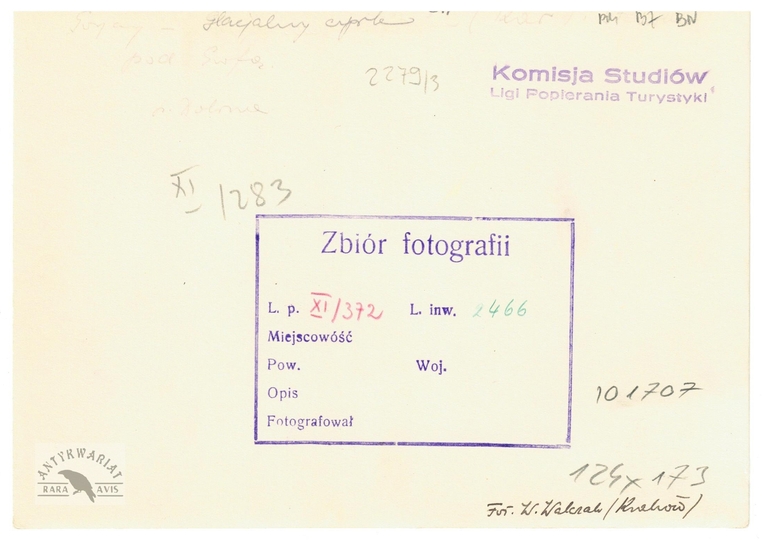 BN BZ BN
pod
2279/3
Komisja Studiów
Ligi Popierania Turystyki
XI/283
Zbiór fotografii
L. p. XI/372 L. inw. 2466
Miejscowość
Pow. Woj.
Opis
Fotografował
101707
124x173
Fot. W. Walczak (Kraków)
ANTYKWARIAT
RARA AVIS